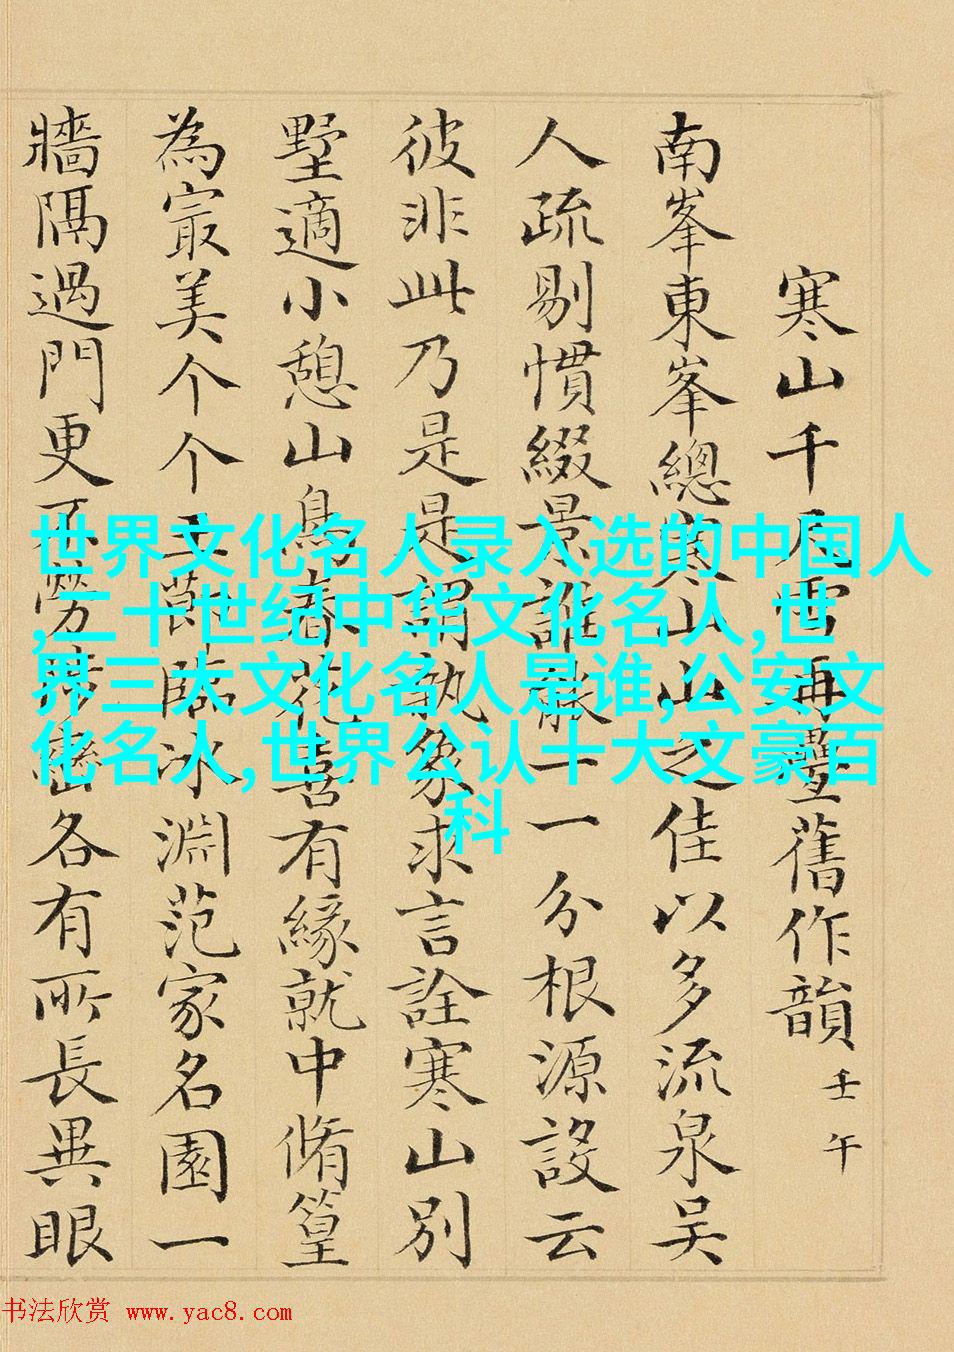 寒山千尺雪再疊舊作韻 壬午
南峯東峯總寒山山之佳以多流泉吴
人疏剔慣綴景誰能一一分根源設云
彼非此乃是是謂執象求言詮寒山別
墅適小憩山鳥春花喜有緣就中脩篁
為㝡美个个玉節臨冰淵范家名園一
牆隔過門更不勞各有所長異眼
世界文化名人录入选的中国人
,二十世纪中华文化名人,世
界三大文化名人是谁,公安文
化名人,世界公认十大文豪百
科
书法欣赏 www.yac8.com